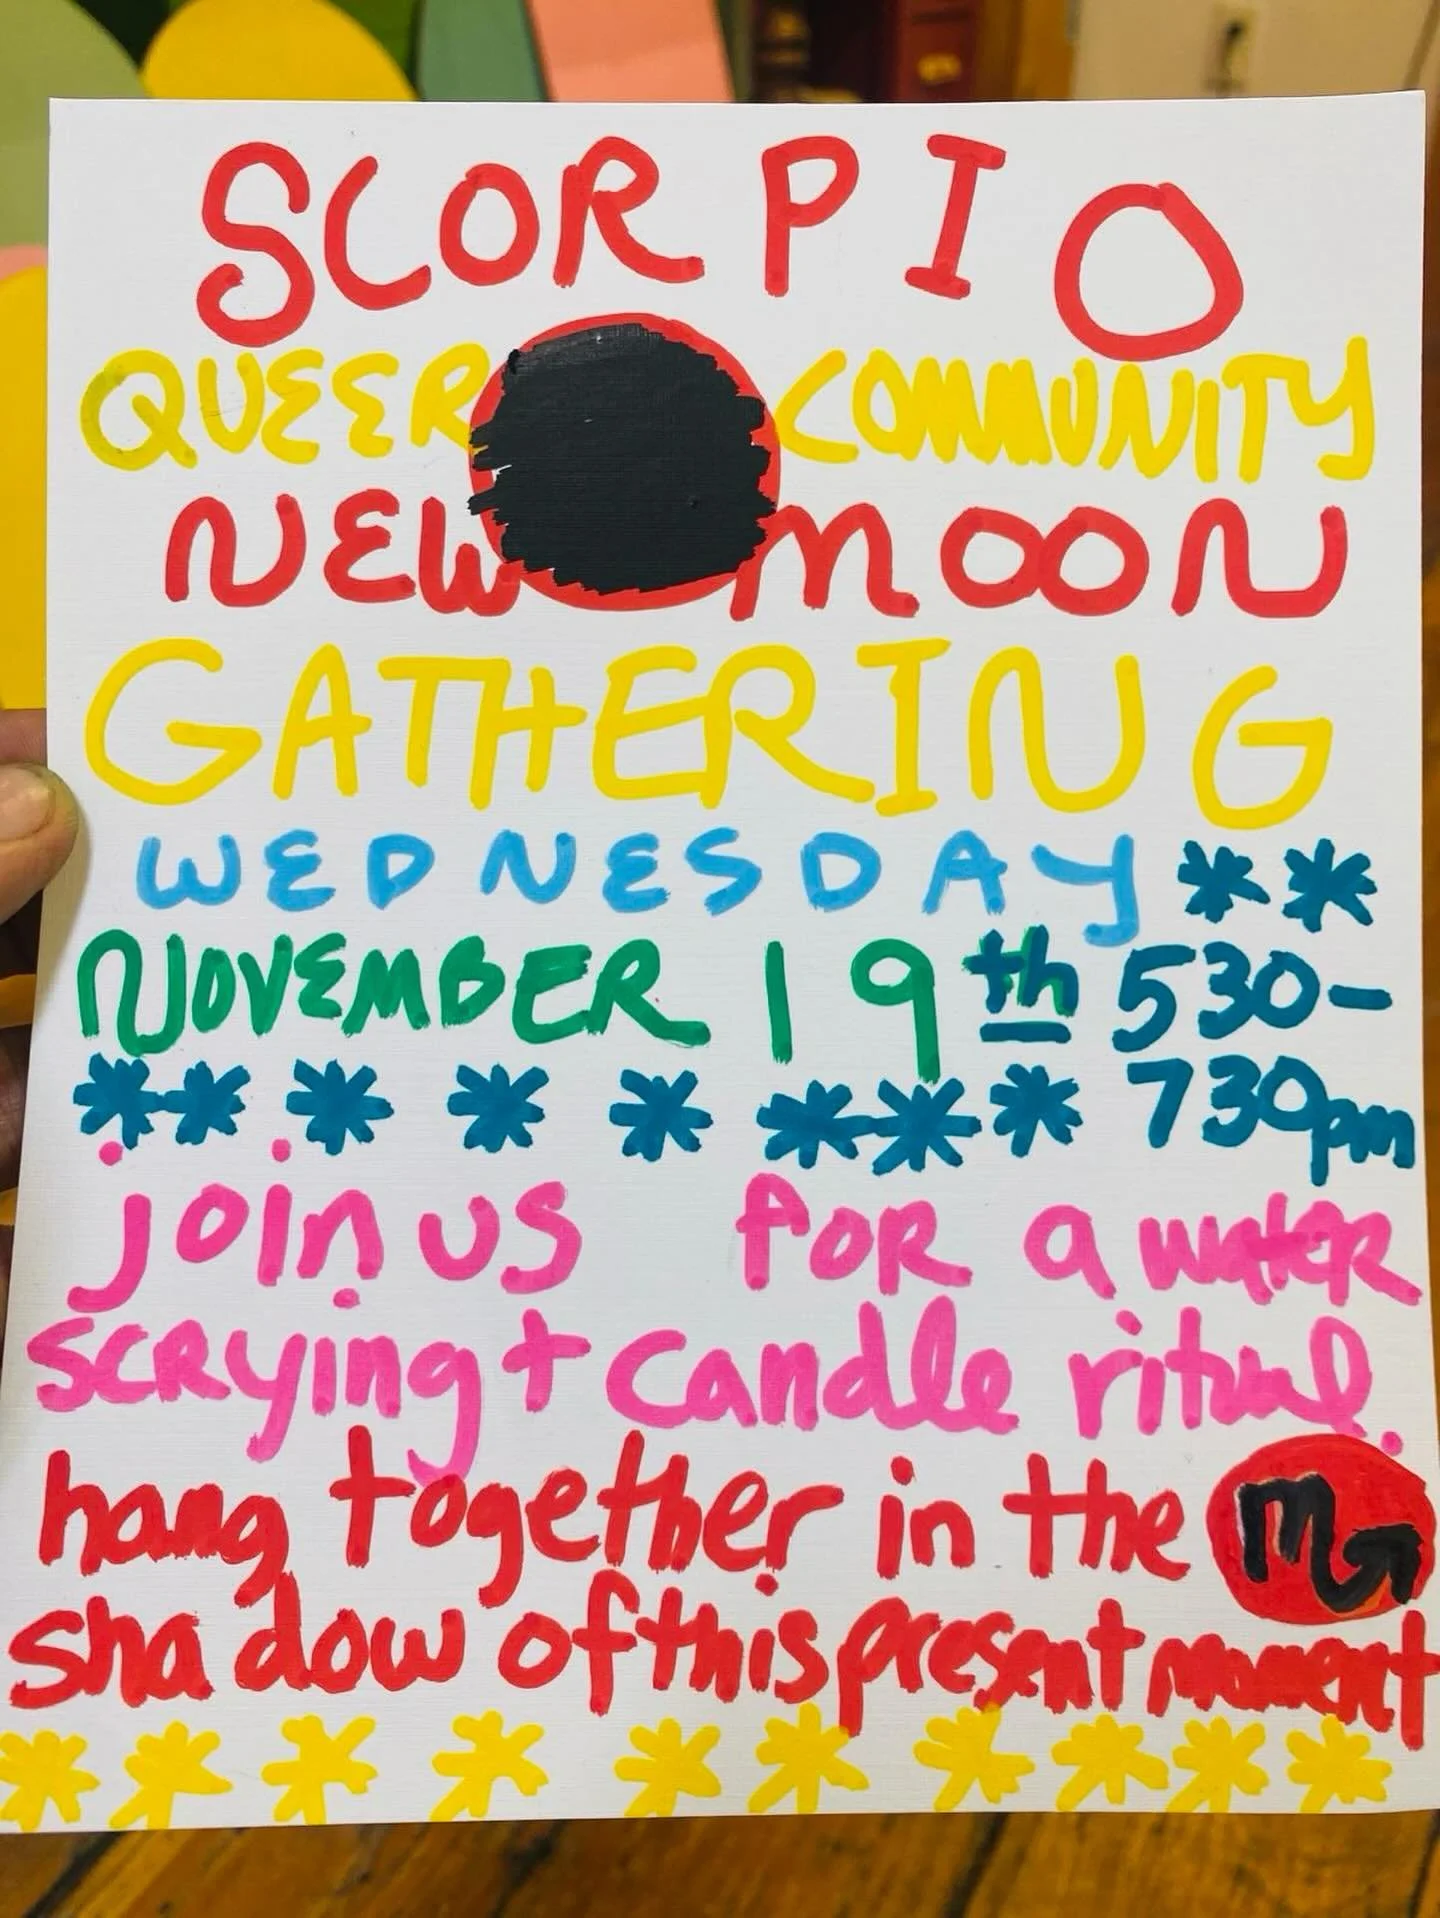 SCORPIO
QUEER COMMUNITY
NEW MOON
GATHERING
WEDNESDAY **
NOVEMBER 19th 530-
** * * * *** 730pm
join us for a water
scrying + candle ritual.
hang together in the ♏
shadow of this present moment
* * * * * * * * * *